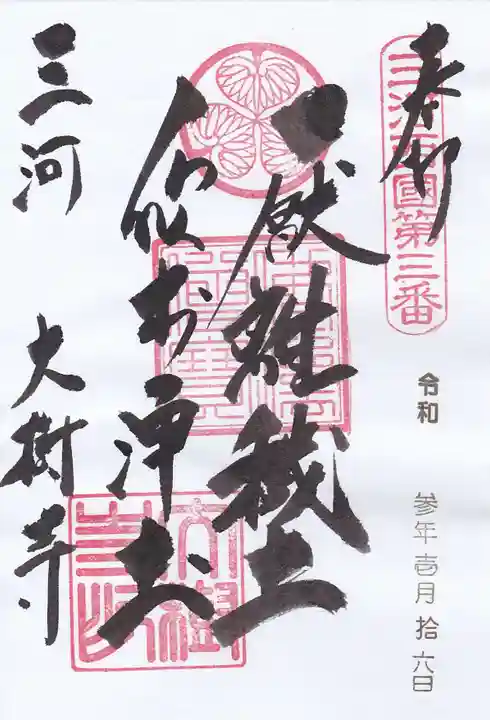 奉拝
三河西國第三番
令和 参年壱月拾六日
厭離穢土
欣求浄土
三河 大樹寺
大樹寺印